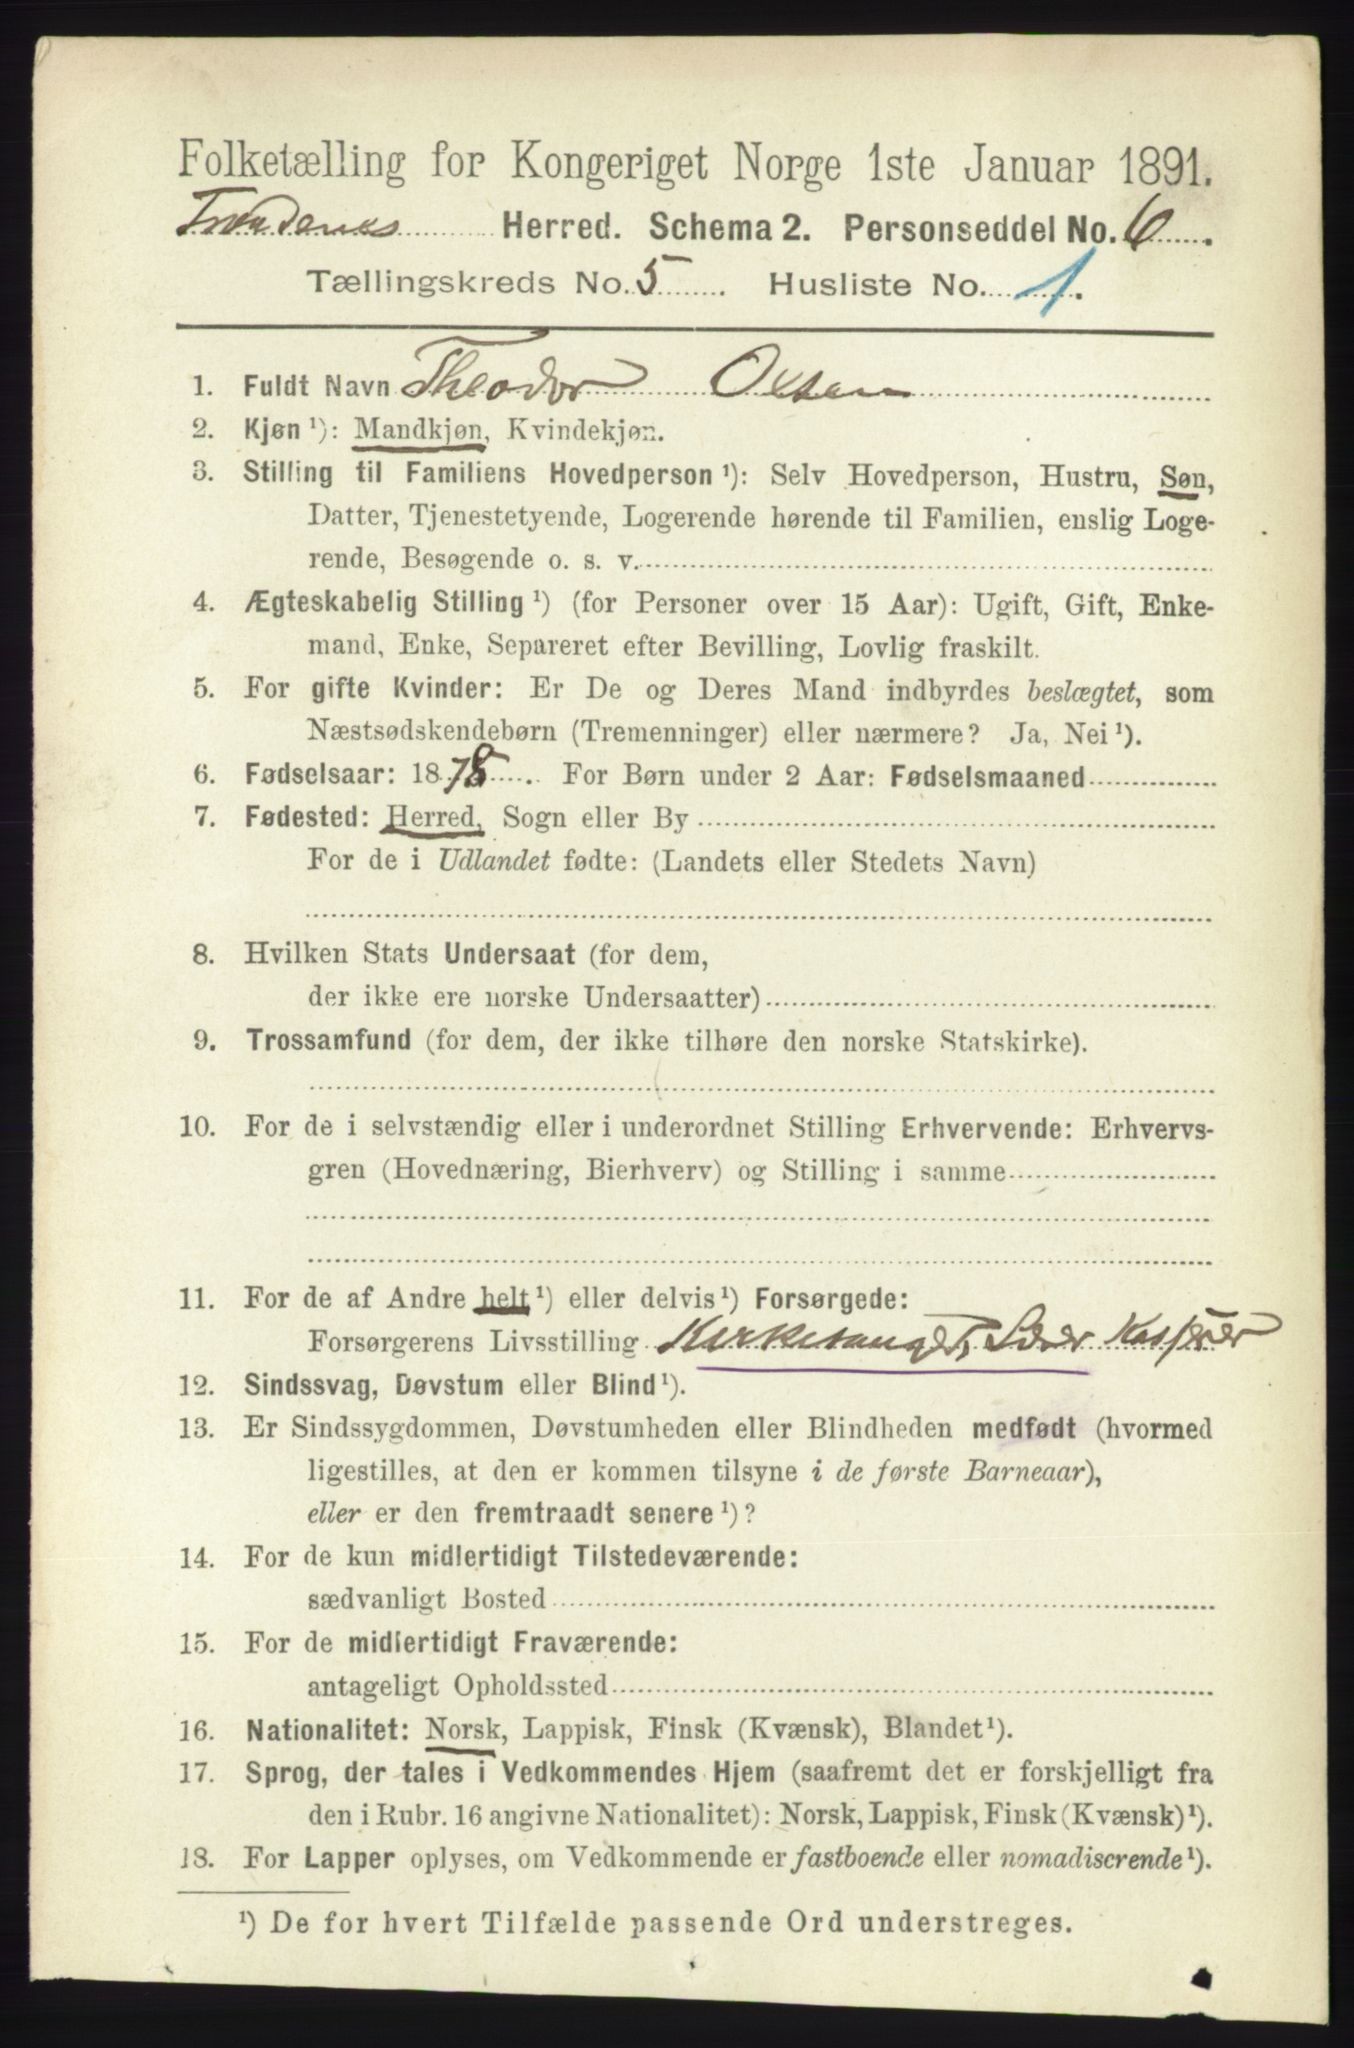 Folketælling for Kongeriget Norge 1ste Januar 1891.
Trondenes Herred. Schema 2. Personseddel No. 6.
Tællingskreds No. 5. Husliste No. 1.
1. Fuldt Navn Theodor Olsen
2. Kjøn ¹): Mandkjøn, Kvindekjøn.
3. Stilling til Familiens Hovedperson ¹): Selv Hovedperson, Hustru, Søn,
Datter, Tjenestetyende, Logerende hørende til Familien, enslig Loge-
rende, Besøgende o. s. v.
4. Ægteskabelig Stilling ¹) (for Personer over 15 Aar): Ugift, Gift, Enke-
mand, Enke, Separeret efter Bevilling, Lovlig fraskilt.
5. For gifte Kvinder: Er De og Deres Mand indbyrdes beslægtet, som
Næstsødskendebørn (Tremenninger) eller nærmere? Ja, Nei ¹).
6. Fødselsaar: 1878. For Børn under 2 Aar: Fødselsmaaned
7. Fødested: Herred, Sogn eller By
For de i Udlandet fødte: (Landets eller Stedets Navn)
8. Hvilken Stats Undersaat (for dem,
der ikke ere norske Undersaatter)
9. Trossamfund (for dem, der ikke tilhøre den norske Statskirke).
10. For de i selvstændig eller i underordnet Stilling Erhvervende: Erhvervs-
gren (Hovednæring, Bierhverv) og Stilling i samme
11. For de af Andre helt ¹) eller delvis ¹) Forsørgede:
Forsørgerens Livsstilling Kirkesanger, Lærer Kasserer
12. Sindssvag, Døvstum eller Blind ¹).
13. Er Sindssygdommen, Døvstumheden eller Blindheden medfødt (hvormed
ligestilles, at den er kommen tilsyne i de første Barneaar),
eller er den fremtraadt senere ¹)?
14. For de kun midlertidigt Tilstedeværende:
sædvanligt Bosted
15. For de midlertidigt Fraværende:
antageligt Opholdssted
16. Nationalitet: Norsk, Lappisk, Finsk (Kvænsk), Blandet ¹).
17. Sprog, der tales i Vedkommendes Hjem (saafremt det er forskjelligt fra
den i Rubr. 16 angivne Nationalitet): Norsk, Lappisk, Finsk (Kvænsk) ¹).
18. For Lapper oplyses, om Vedkommende er fastboende eller nomadiserende ¹).
¹) De for hvert Tilfælde passende Ord understreges.